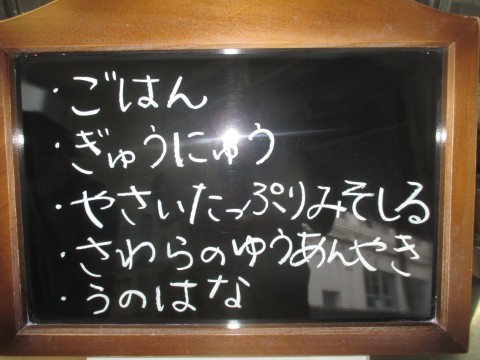 ・ごはん
・ぎゅうにゅう
・やさいたっぷりみそしる
・さわらのゆうあんやき
・うのはな